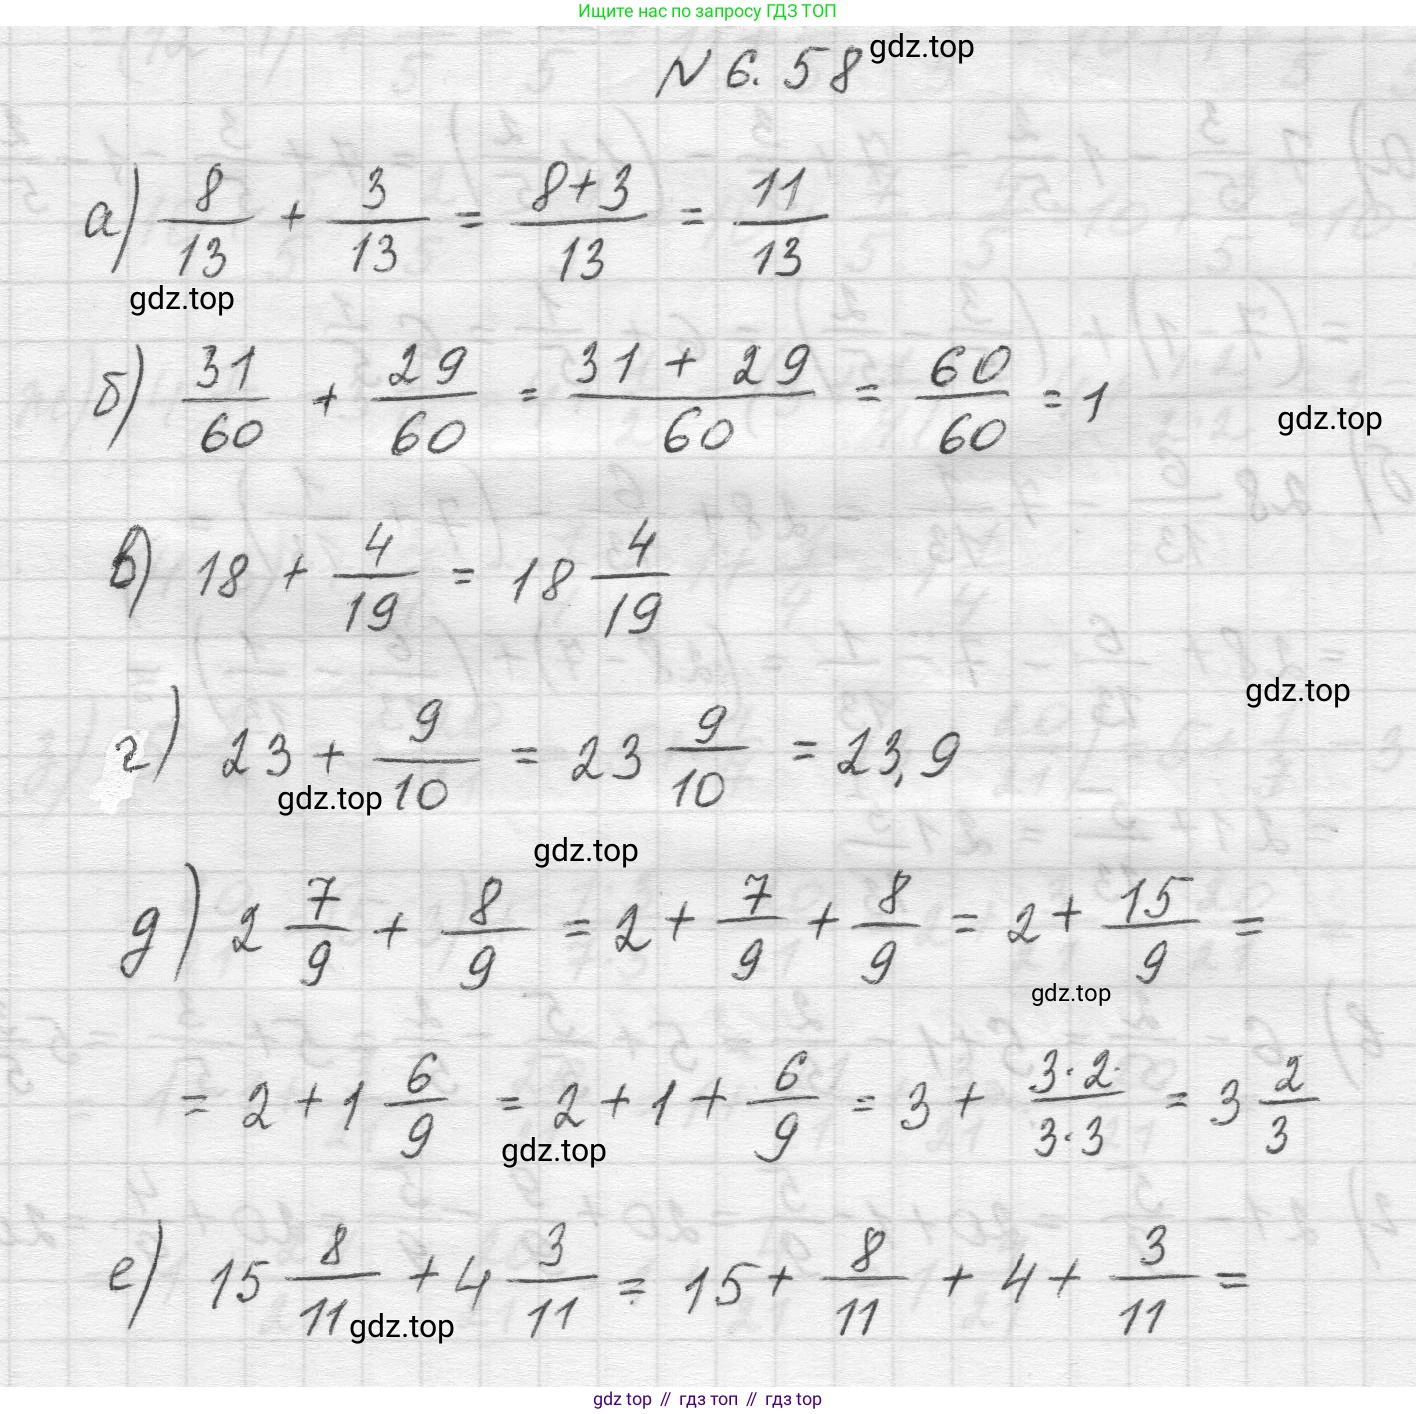 Ищите нас по запросу ГДЗ ТОП
N 6.58 gdz.top
а) 8/13 + 3/13 = (8+3)/13 = 11/13
gdz.top
б) 31/60 + 29/60 = (31 + 29)/60 = 60/60 = 1
gdz.top
в) 18 + 4/19 = 18 4/19
gdz.top
г) 23 + 9/10 = 23 9/10 = 23,9
gdz.top
gdz.top
д) 2 7/9 + 8/9 = 2 + 7/9 + 8/9 = 2 + 15/9 =
gdz.top
= 2 + 1 6/9 = 2 + 1 + 6/9 = 3 + (3·2)/(3·3) = 3 2/3
gdz.top
е) 15 8/11 + 4 3/11 = 15 + 8/11 + 4 + 3/11 =
gdz.top
gdz top // гдз топ // гдз top